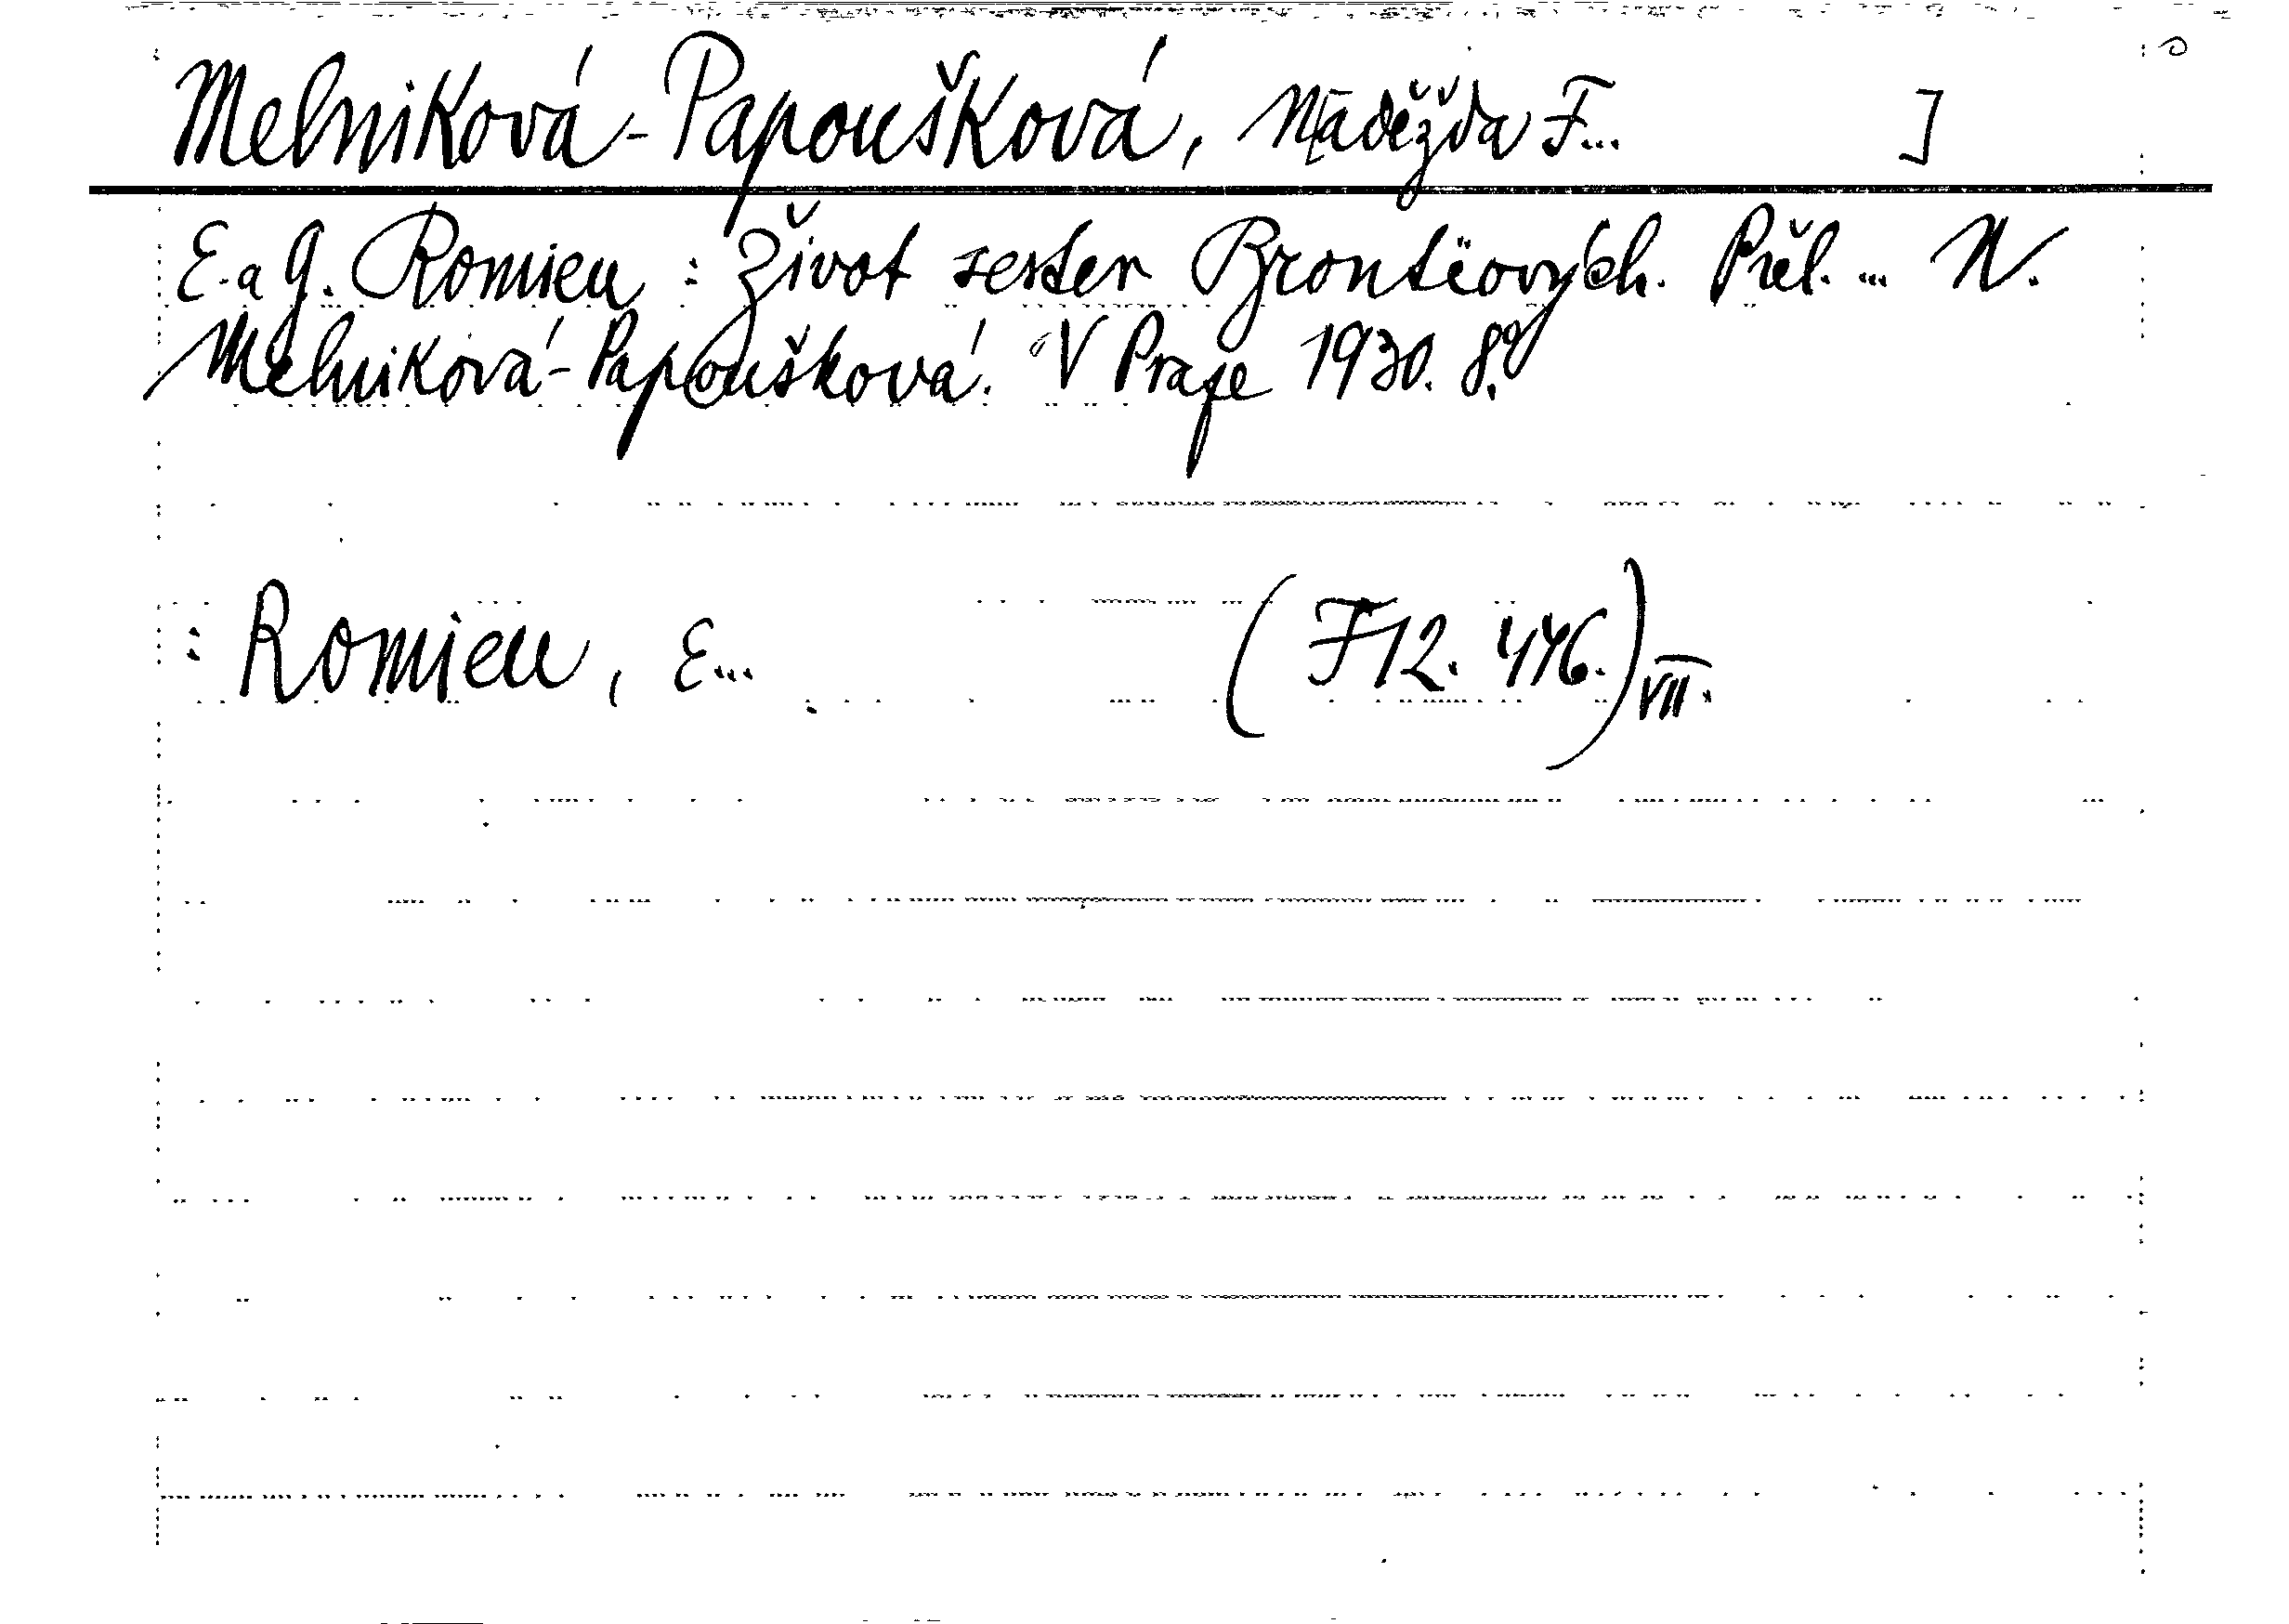 Melniková-Papoušková, N[aděžda F... ]
E. a G. Romieu : Život sester Brontëových. Přel. ... N.
Melniková-Papoušková. V Praze 1930. 8°.
: Romieu, E... (F12. 446.) VII.